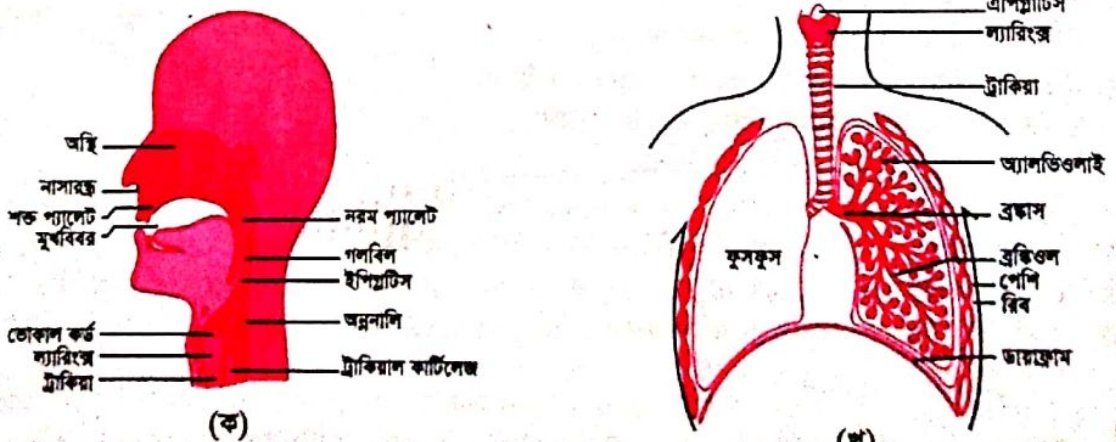 অস্থি
নাসারন্ধ্র
শক্ত প্যালেট
মুখবিবর
ভোকাল কর্ড
ল্যারিংক্স
ট্রাকিয়া
নরম প্যালেট
গলবিল
ইপিগ্লটিস
অন্ননালি
ট্রাকিয়াল কার্টিলেজ
(ক)
এপিগ্লটিস
ল্যারিংক্স
ট্রাকিয়া
অ্যালভিওলাই
ব্রঙ্কাস
ফুসফুস
ব্রঙ্কিওল
পেশি
রিব
ডায়াফ্রাম
(খ)